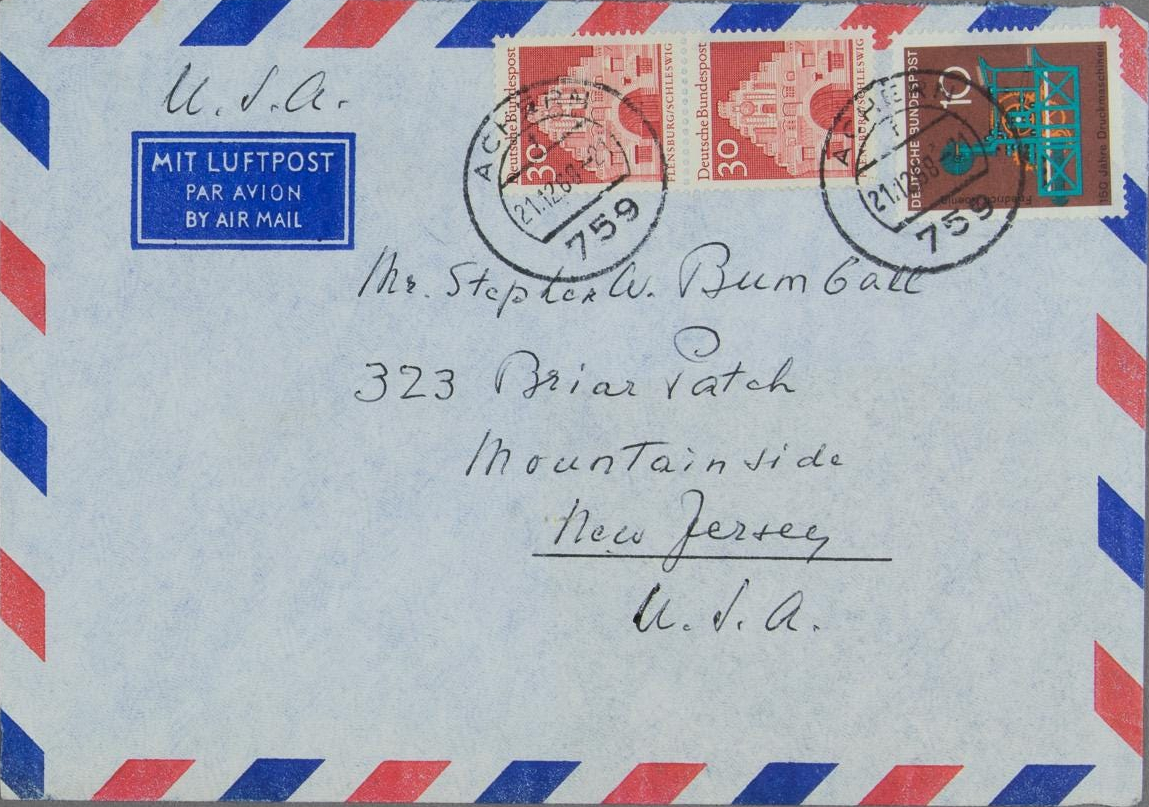 U.S.A.
MIT LUFTPOST
PAR AVION
BY AIR MAIL
Deutsche Bundespost
30
FLENSBURG/SCHLESWIG
Deutsche Bundespost
30
FLENSBURG/SCHLESWIG
DEUTSCHE BUNDESPOST
10
Friedrich Koenig
150 Jahre Druckmaschinen
ACHERN
21.12.68
759
ACHERN
21.12.68
759
Mr. Stephen W. Bumball
323 Briar Patch
Mountainside
New Jersey
U.S.A.